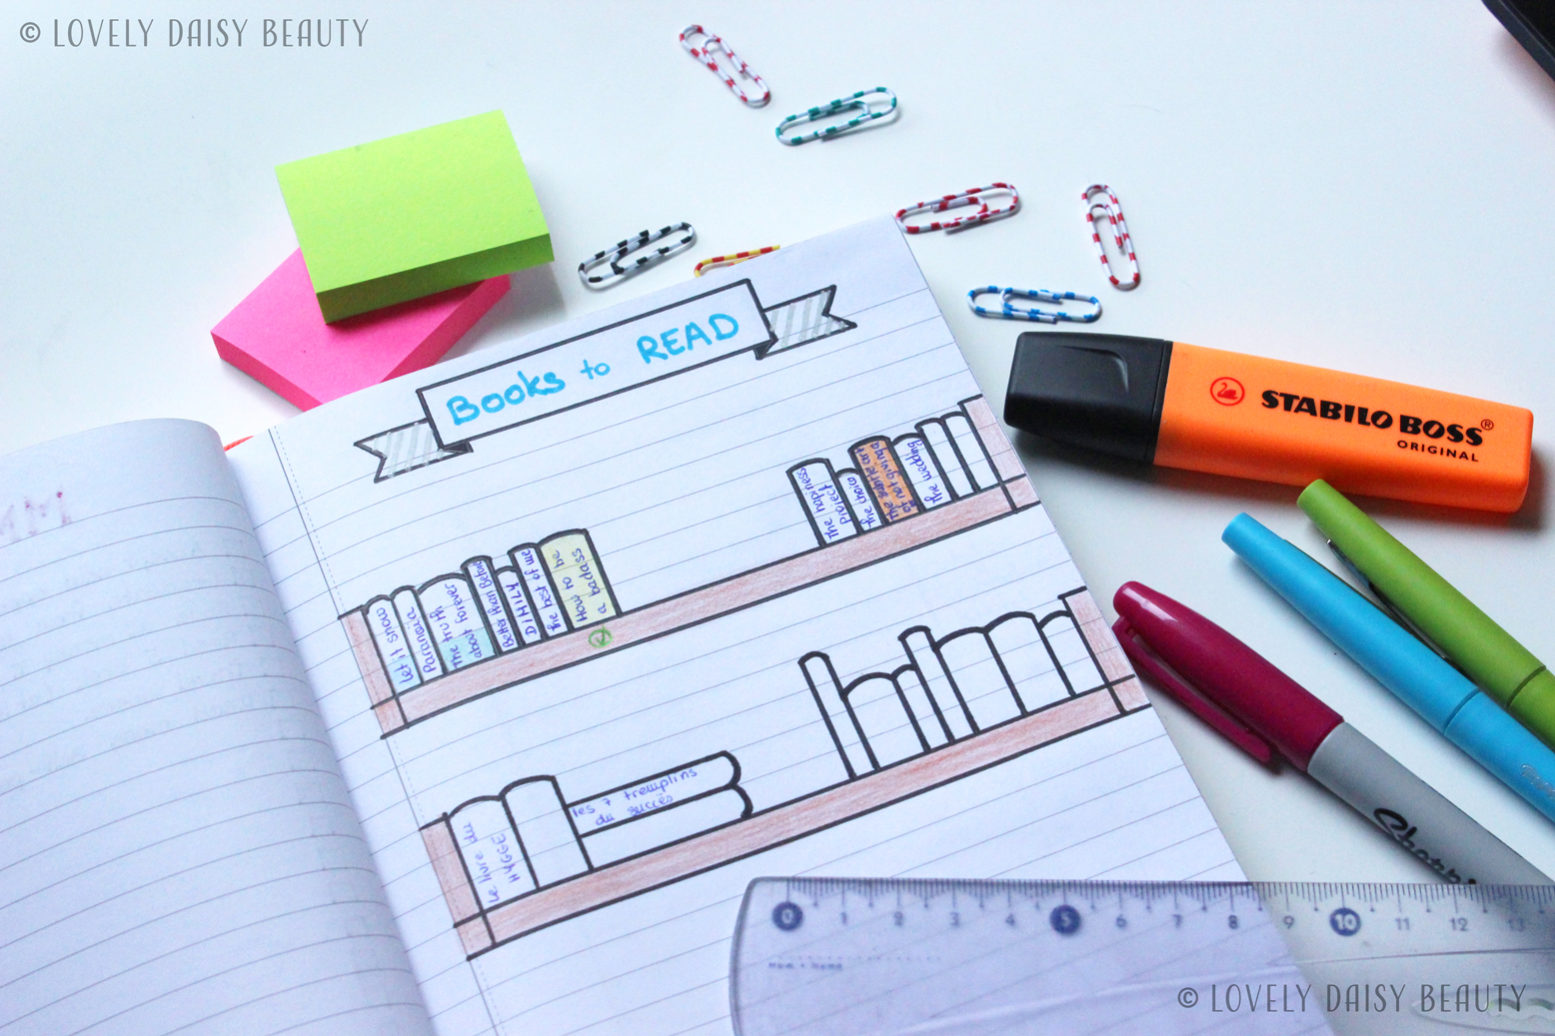 © LOVELY DAISY BEAUTY
Books to READ
Let it snow
Paranoïa
The truth
about forever
Better than Before
DIMILY
The best of me
How to be
a badass
The happiness
Project
The choice
The subtle art
of not giving
The wedding
Le livre du
HYGGE
Les 7 tremplins
du succès
STABILO BOSS®
ORIGINAL
Sharpie
0 1 2 3 4 5 6 7 8 9 10 11 12 13
© LOVELY DAISY BEAUTY